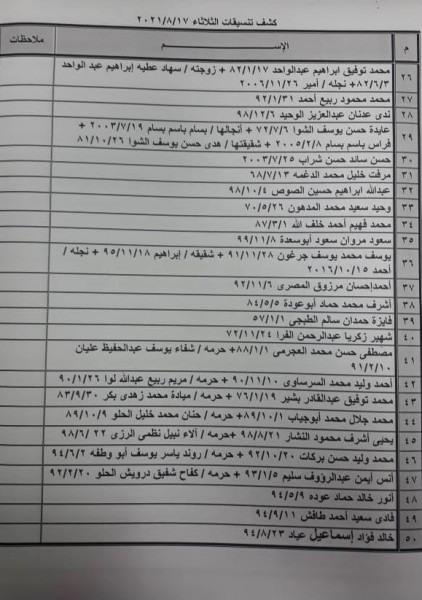 كشف تنسيقات الثلاثاء ٢٠٢١/٨/١٧
م الإســـــم ملاحظات
٢٦ محمد توفيق ابراهيم عبدالواحد ٨٢/١/١٧ + زوجته / سهاد عطيه إبراهيم عبد الواحد
٨٢/٦/٣ + نجله / أمير ٢٠٠٦/١١/٢٦
٢٧ محمد محمود ربيع أحمد ٩٢/١/٣١
٢٨ ندى عدنان عبدالعزيز الوحيد ٩٨/١٢/٦
٢٩ عايدة حسن يوسف الشوا ٧٢/٧/٦ + أنجالها / بسام باسم بسام ٢٠٠٣/٧/١٩ +
فراس باسم بسام ٢٠٠٥/٢/٨ + شقيقتها / هدى حسن يوسف الشوا ٨١/١٠/٢٦
٣٠ حسن ساند حسن شراب ٢٠٠٣/٧/٢٥
٣١ مرفت خليل محمد الدغمه ٦٨/٧/١٣
٣٢ عبدالله ابراهيم حسين الصوص ٩٨/١٠/٤
٣٣ وحيد سعيد محمد المدهون ٧٠/٥/٢٦
٣٤ محمد فهيم أحمد خلف الله ٨٧/٣/١
٣٥ سعود مروان سعود أبوسعدة ٩٩/١١/٨
٣٦ يوسف محمد يوسف جرغون ٩١/١١/٢٨ + شقيقه / إبراهيم ٩٥/١١/١٨ + نجله /
أحمد ٢٠١٦/١٠/١٥
٣٧ أحمدإحسان مرزوق المصرى ٩٢/١١/٦
٣٨ أشرف محمد حماد أبوعودة ٨٤/٥/٥
٣٩ فايزة حمدان سالم الطبجي ٥٧/١/١
٤٠ شهير زكريا عبدالرحمن الفرا ٧٢/١١/٢٤
٤١ مصطفى حسن محمد العجرمى ٨٨/١/١+ حرمه / شفاء يوسف عبدالحفيظ عليان
٩١/٢/١٠
٤٢ أحمد وليد محمد السرساوى ٩٠/١١/١٠ + حرمه / مريم ربيع عبدالله لوا ٩٠/١/٢٦
٤٣ محمد توفيق عبدالقادر بشير ٧٦/١/١٩ + حرمه / ميادة محمد زهدى بكر ٨٣/٩/٣٠
٤٤ محمد جلال محمد أبوجياب ٨٩/١٠/١ + حرمه / حنان محمد خليل الحلو ٨٩/١٠/٩
٤٥ يحيى أشرف محمود النشار ٩٨/٨/٢١ + حرمه / آلاء نبيل نظمى الرزى ٢٢ /٩٨/٦
٤٦ محمد وليد حسن بركات ٩٢/١٠/٢٠ + حرمه / روند ياسر يوسف أبو وطفه ٩٤/٦/٢
٤٧ أنس أيمن عبدالرؤوف سليم ٩٣/١/٥ + حرمه / كفاح شفيق درويش الحلو ٩٢/٢/٢٠
٤٨ أنور خالد حماد عوده ٩٤/٥/٩
٤٩ فادى سعيد أحمد طافش ٩٤/٩/١١
٥٠ خالد فؤاد إسماعيل عياد ٩٤/٨/٢٣